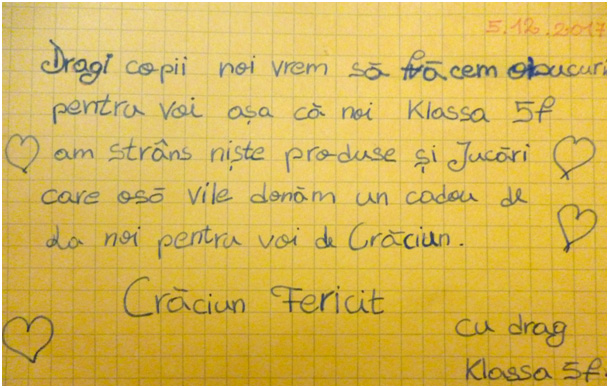 5.12.2017
Dragi copii noi vrem să facem bucuri
pentru voi așa că noi Klassa 5f
am strâns niște produse și Jucări
care osă vile donăm un cadou de
la noi pentru voi de Crăciun.
Crăciun Fericit
cu drag
Klassa 5f.